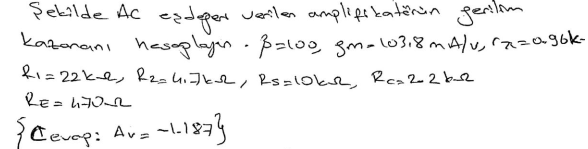 Şekilde AC eşdeğer verilen amplifikatörün gerilim
kazancını hesaplayın. β=100, gm=103.8mA/V, rπ=0.96k
R1=22kΩ, R2=4.7kΩ, RS=10kΩ, RC=2.2kΩ
RE=470Ω
{Cevap: Av=-1.187}